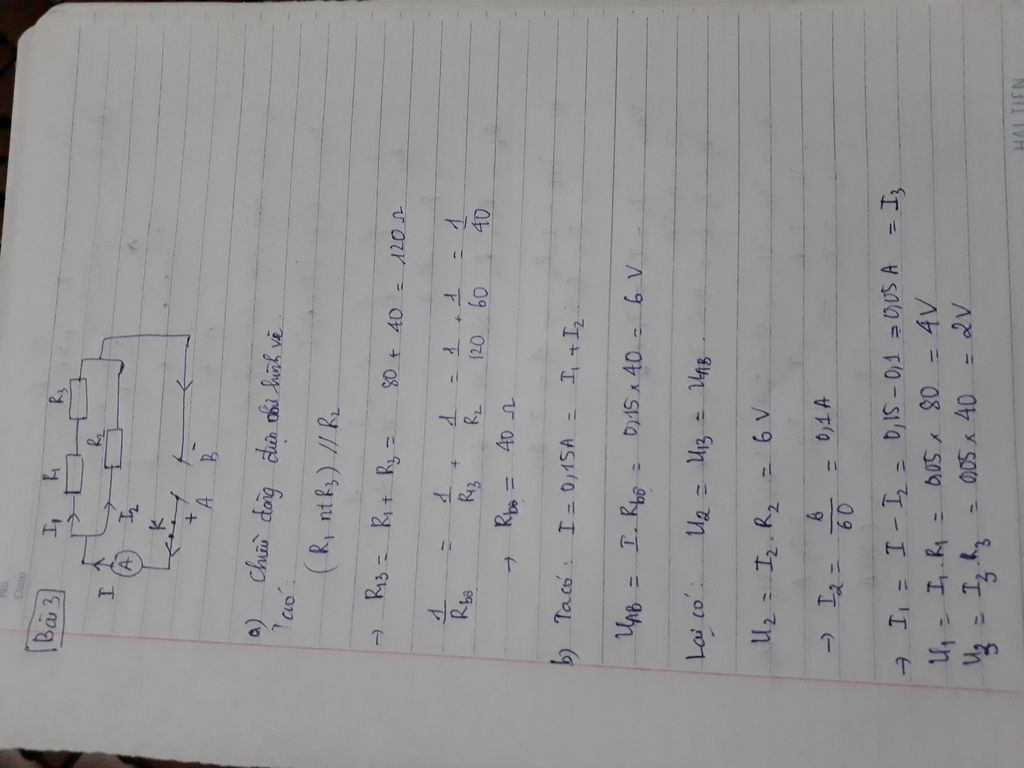 No.
Date
Bài 3
I1 R1 R3
I R2
A I2
K
+ -
A B
a) Chiều dòng điện như hình vẽ.
Ta có:
(R1 nt R3) // R2
→ R13 = R1 + R3 = 80 + 40 = 120 Ω
1/Rtđ = 1/R13 + 1/R2 = 1/120 + 1/60 = 1/40
→ Rtđ = 40 Ω
b) Ta có: I = 0,15A = I1 + I2
UAB = I. Rtđ = 0,15 x 40 = 6 V
Lại có: U2 = U13 = UAB.
U2 = I2. R2 = 6 V
→ I2 = 6/60 = 0,1A
→ I1 = I - I2 = 0,15 - 0,1 = 0,05A = I3
U1 = I1. R1 = 0,05 x 80 = 4V
U3 = I3. R3 = 0,05 x 40 = 2V
HẢI TIẾN